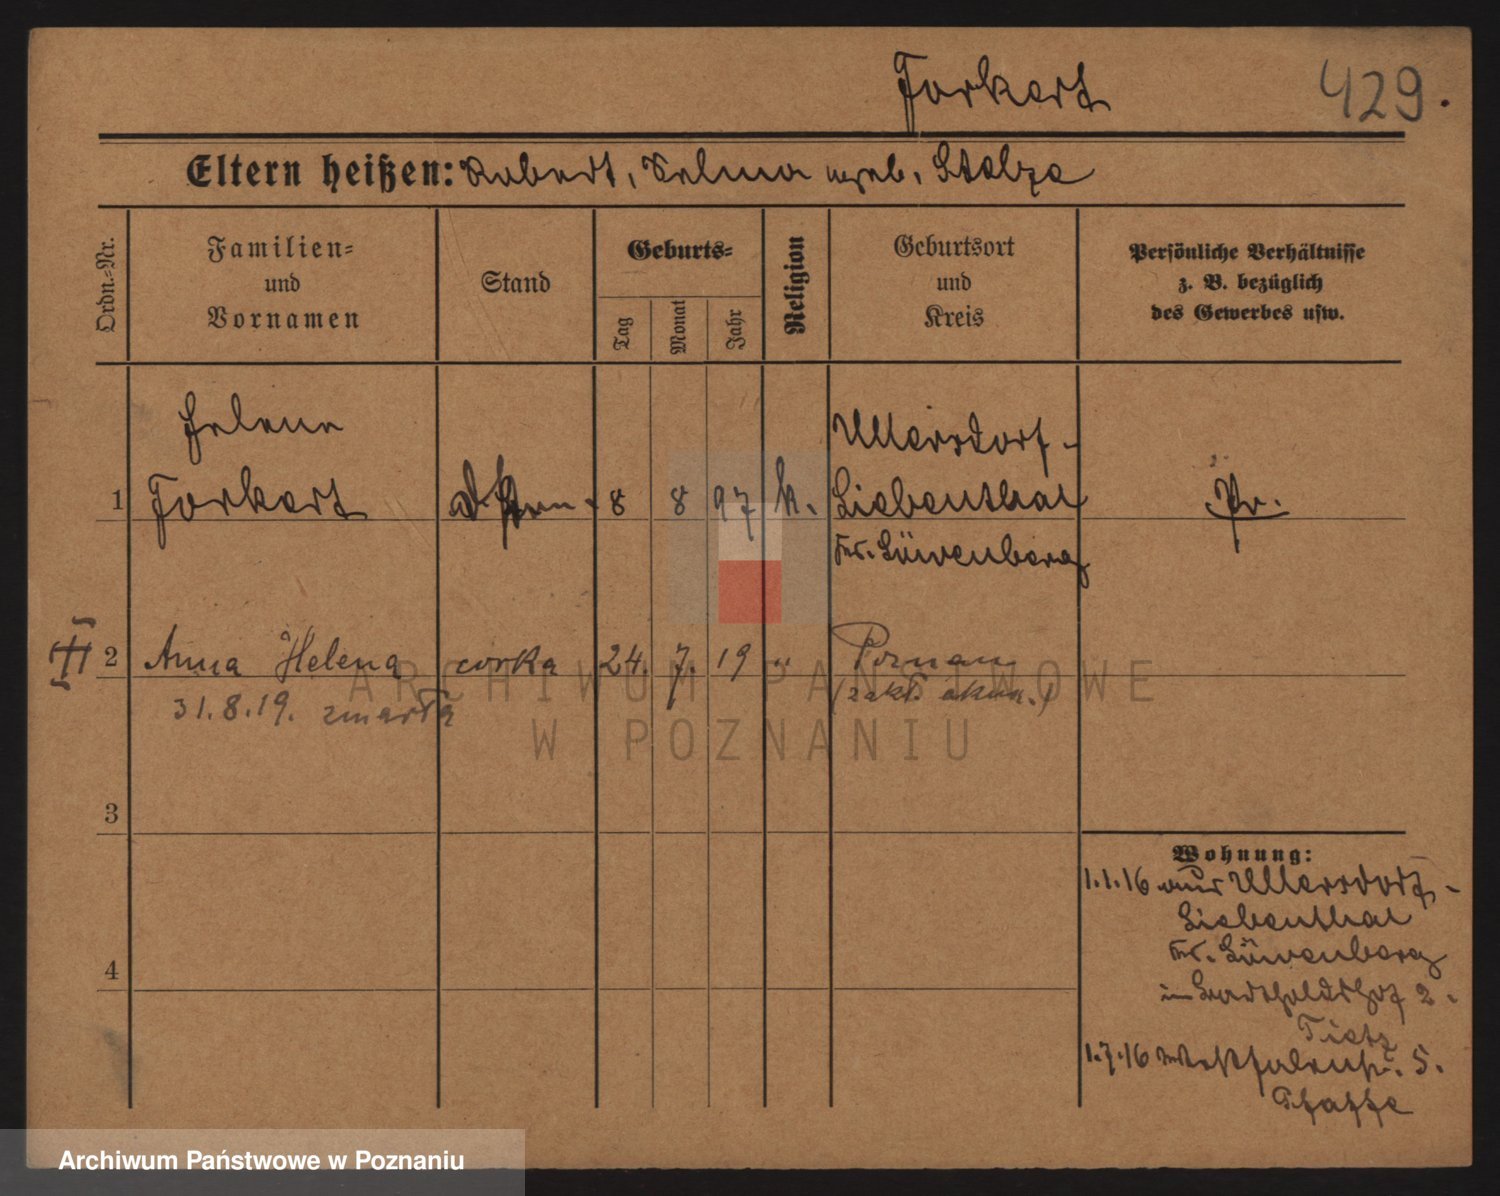 Forkert
429.
Eltern heißen: Robert, Selma geb. Stelze
Ordn.=Nr.
Familien=
und
Vornamen
Stand
Geburts=
Tag
Monat
Jahr
Religion
Geburtsort
und
Kreis
Persönliche Verhältnisse
z. B. bezüglich
des Gewerbes usw.
Helene
1 Forkert 8 8 97 k.
Ullersdorf-
Liebenthal
Kr. Löwenberg
Pr.
2 Anna Helena corka 24. 7. 19 " Poznan
31.8.19. zmarła
3
4
Wohnung:
1.1.16 aus Ullersdorf-
Liebenthal
Kr. Löwenberg
2.
Tietz
1.7.16 5.
Pfaffe
ARCHIWUM PAŃSTWOWE
W POZNANIU
Archiwum Państwowe w Poznaniu